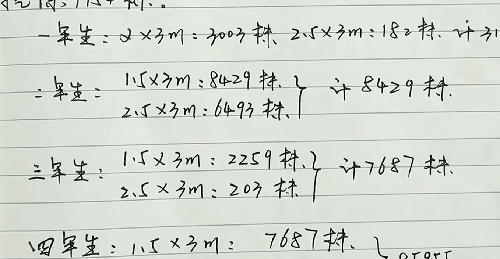 一年生: 2×3m: 3003株. 2.5×3m: 182株. 计31
二年生: 1.5×3m: 8429株. } 计8429株.
2.5×3m: 6493株.
三年生: 1.5×3m: 2259株. } 计7687株.
2.5×3m: 203株
四年生: 1.5×3m: 7687株. }